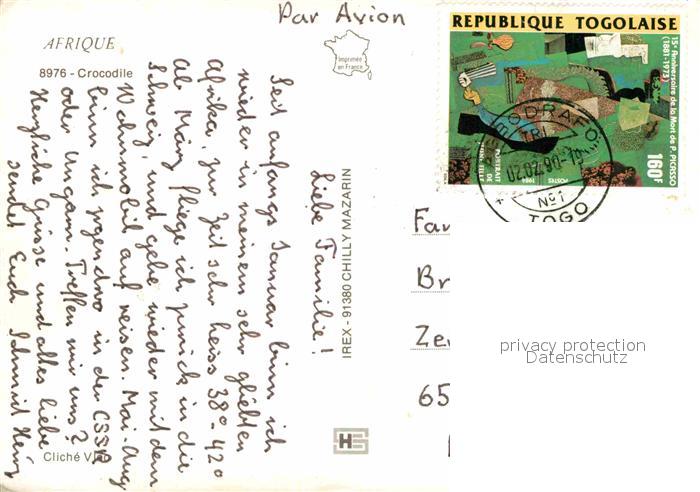 Par Avion
AFRIQUE
8976 - Crocodile
Imprimée
en France
REPUBLIQUE TOGOLAISE
15e Anniversaire de la Mort de P. PICASSO
(1881-1973)
160F
POSTES
1984
PORTRAIT
DE
JEUNE FILLE
AGBODRAFO
02.02.90-19
No1
TOGO
Liebe Familie!
Seit anfangs Januar binn ich
wieder in meinem sehr gliebten
Afrika. Zur Zeit sehr heiss 38°-42°
Ab März fliege ich zurück in die
Schweiz, und gehe wieder mit dem
Wohnmobil auf reisen. Mai-Aug
binn ich irgendwo in der CSSR
oder Ungarn. Treffen wir uns?
Herzliche Grüsse und alles liebe
sendet Euch Schmid
IREX - 91380 CHILLY MAZARIN
Fa
Br
Ze
65
H
Cliché
privacy protection
Datenschutz